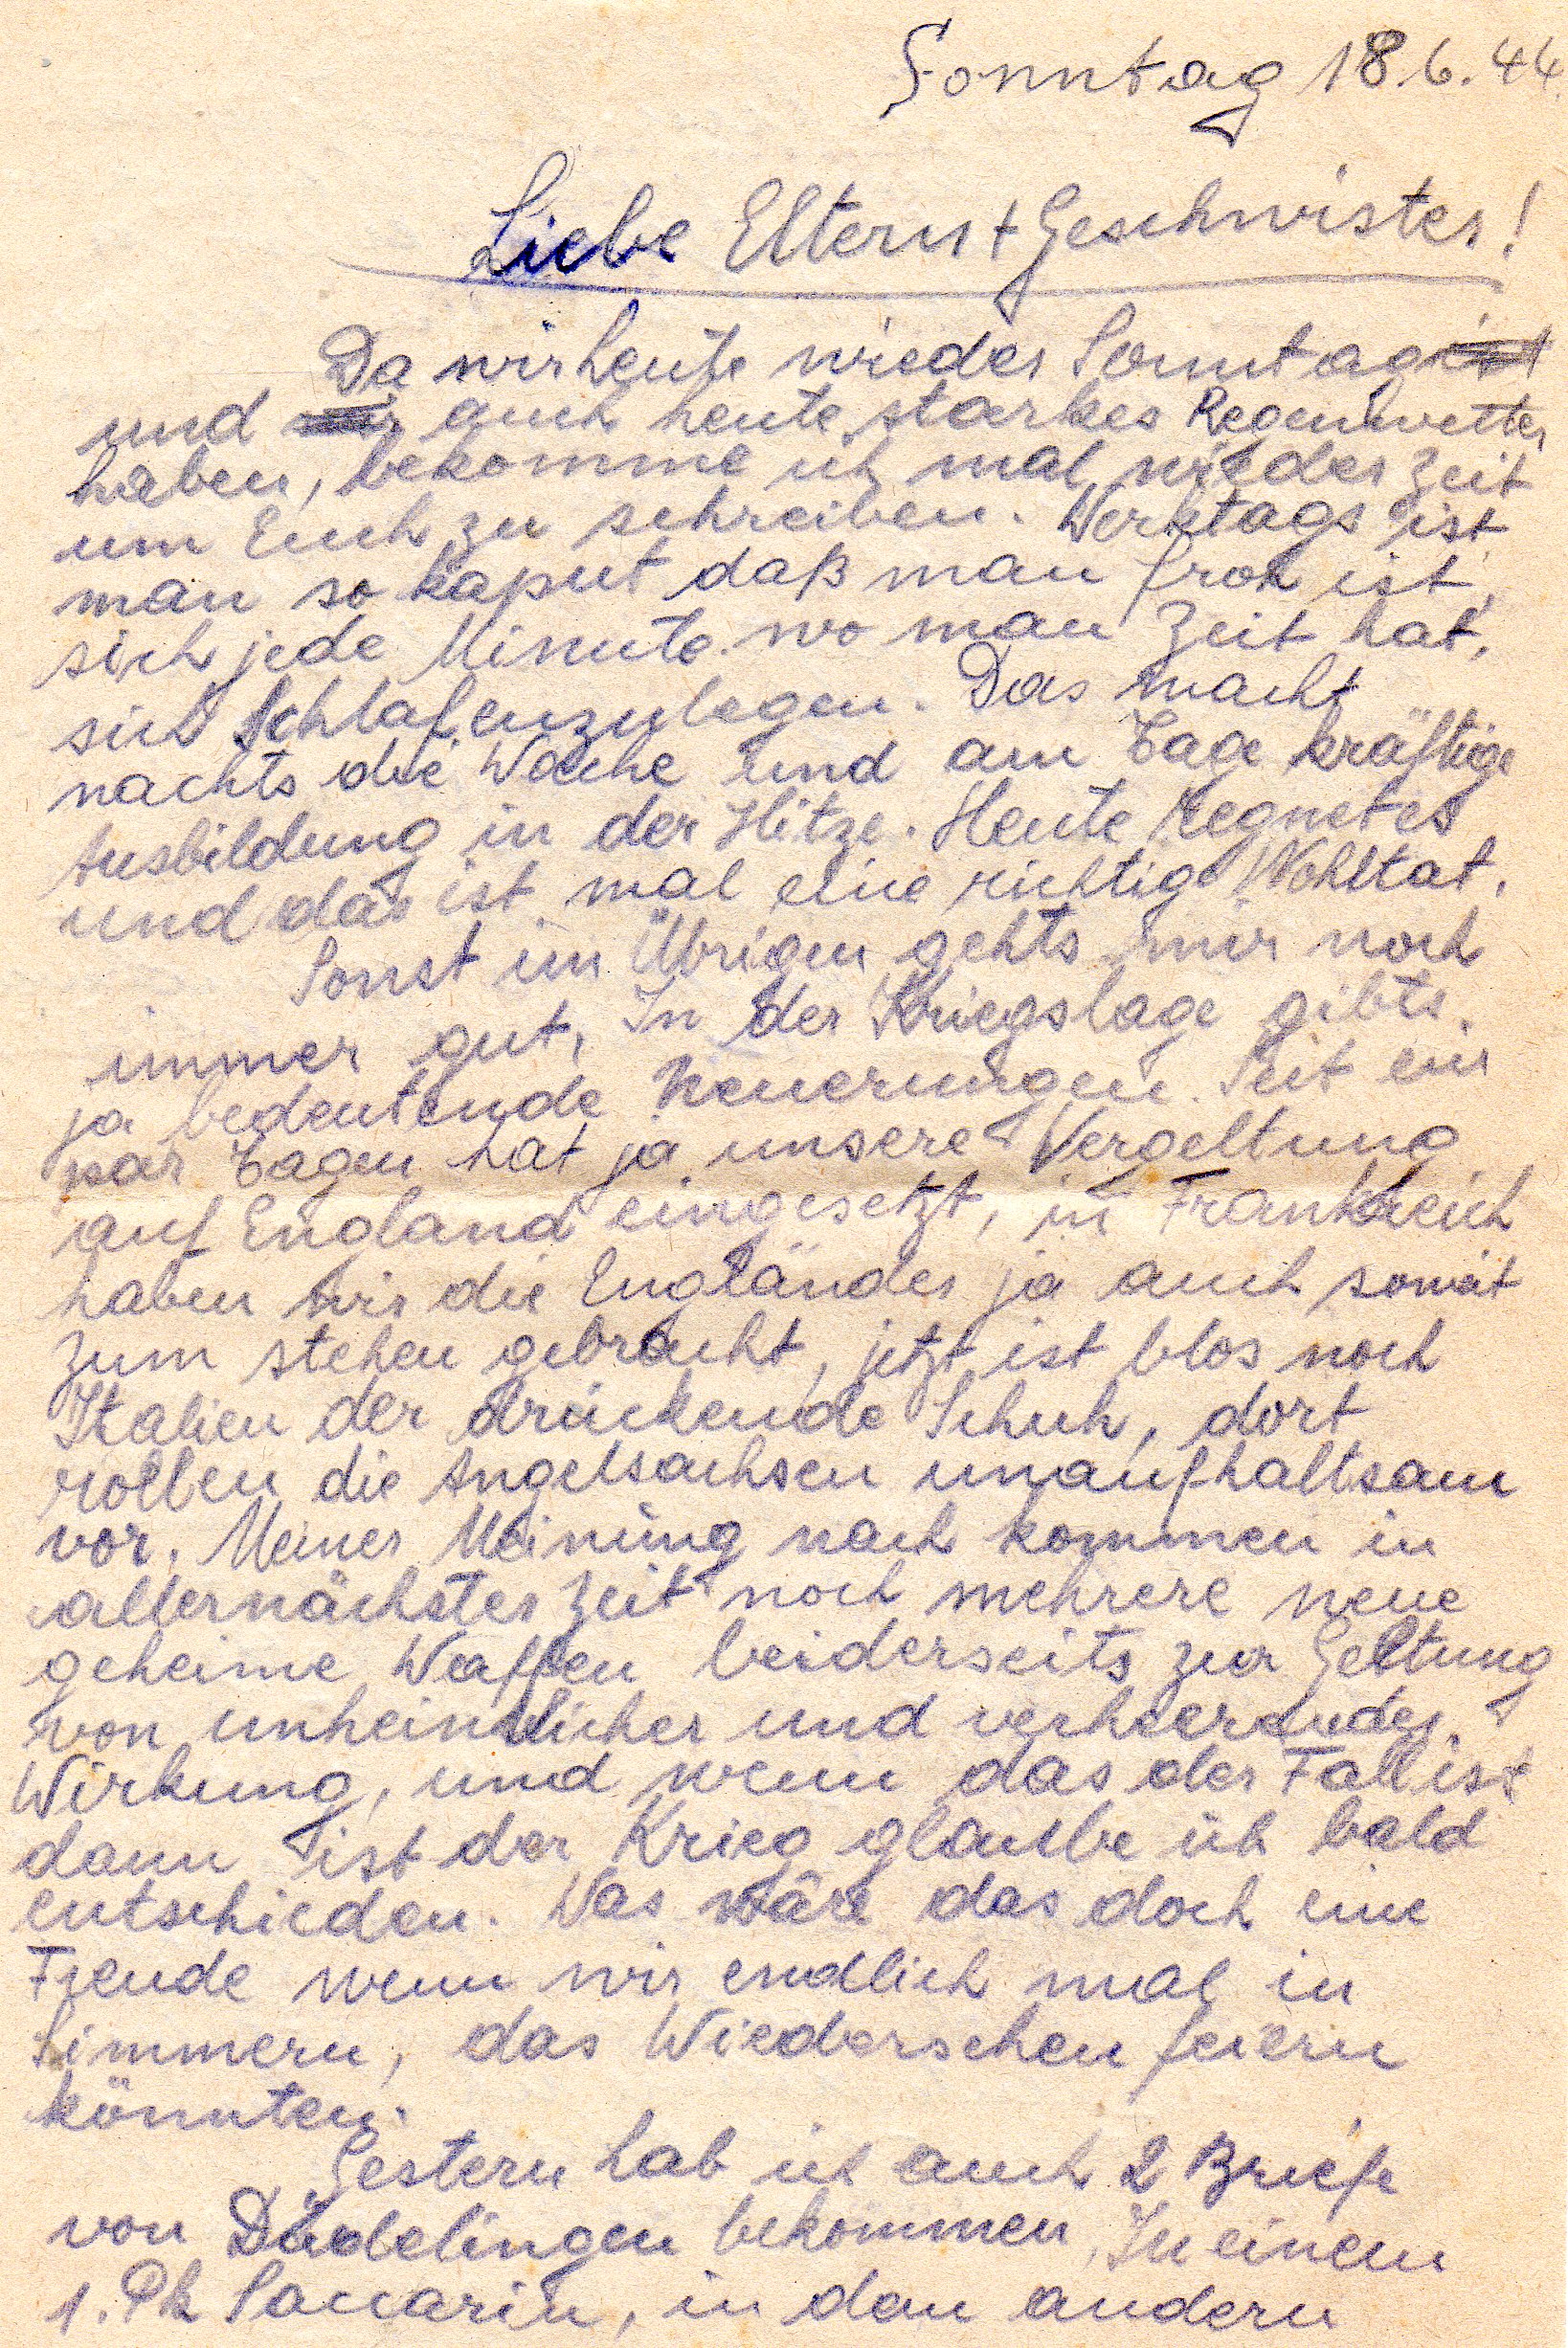 Sonntag 18.6.44.
Liebe Eltern + Geschwister!
Da wir heute wieder Sonntag ist
und auch heute starkes Regenwetter
haben, bekomme ich mal wieder Zeit
um Euch zu schreiben. Werktags ist
man so kaput daß man froh ist,
sich jede Minute wo man Zeit hat,
sich Schlafenzulegen. Das macht
nachts die Wache und am Tage kräftige
Ausbildung in der Hitze. Heute regnet es
und das ist mal eine richtige Wohltat.
Sonst im Übrigen gehts mir noch
immer gut, In der Kriegslage gibts
ja bedeutende Neuerungen. Seit ein
par Tagen hat ja unsere Vergeltung
auf England eingesetzt, in Frankreich
haben wir die Engländer ja auch soweit
zum stehen gebracht, jetzt ist blos noch
Italien der drückende Schuh, dort
rollen die Angelsachsen unaufhaltsam
vor. Meiner Meinung nach kommen in
allernächster Zeit noch mehrere neue
geheime Waffen beiderseits zur Geltung
von unheimlicher und verheerender
Wirkung, und wenn das der Fall ist
dann ist der Krieg glaube ich bald
entschieden. Was wäre das doch eine
Freude wenn wir endlich mal in
Simmern, das Wiedersehen feiern
könnten.
Gestern hab ich auch 2 Briefe
von Düdelingen bekommen, In einem
1. Pk Saccarin, in dem andern